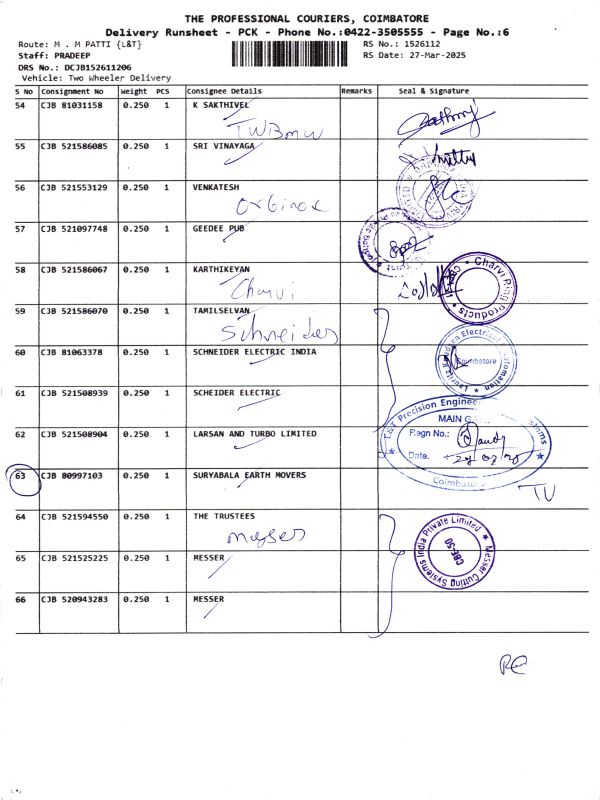 THE PROFESSIONAL COURIERS, COIMBATORE
Delivery Runsheet - PCK - Phone No.:0422-3505555 - Page No.:6
Route: M . M PATTI {L&T}
RS No.: 1526112
Staff: PRADEEP
RS Date: 27-Mar-2025
DRS No.: DCJB152611206
Vehicle: Two Wheeler Delivery
S No Consignment No Weight PCS Consignee Details Remarks Seal & Signature
54 CJB 81031158 0.250 1 K SAKTHIVEL
TWBmw
55 CJB 521586085 0.250 1 SRI VINAYAGA
56 CJB 521553129 0.250 1 VENKATESH
57 CJB 521097748 0.250 1 GEEDEE PUB
58 CJB 521586067 0.250 1 KARTHIKEYAN
Charvi
Charvi Ring Products
59 CJB 521586070 0.250 1 TAMILSELVAN
Schneider
60 CJB 81063378 0.250 1 SCHNEIDER ELECTRIC INDIA
Coimbatore
61 CJB 521508939 0.250 1 SCHEIDER ELECTRIC
62 CJB 521508904 0.250 1 LARSAN AND TURBO LIMITED
L&T Precision Engine
MAIN G
Regn No.:
Date.
Coimbatore
63 CJB 80997103 0.250 1 SURYABALA EARTH MOVERS
TV
64 CJB 521594550 0.250 1 THE TRUSTEES
messer
Messer Cutting Systems India Private Limited
CBE-SO
65 CJB 521525225 0.250 1 MESSER
66 CJB 520943283 0.250 1 MESSER